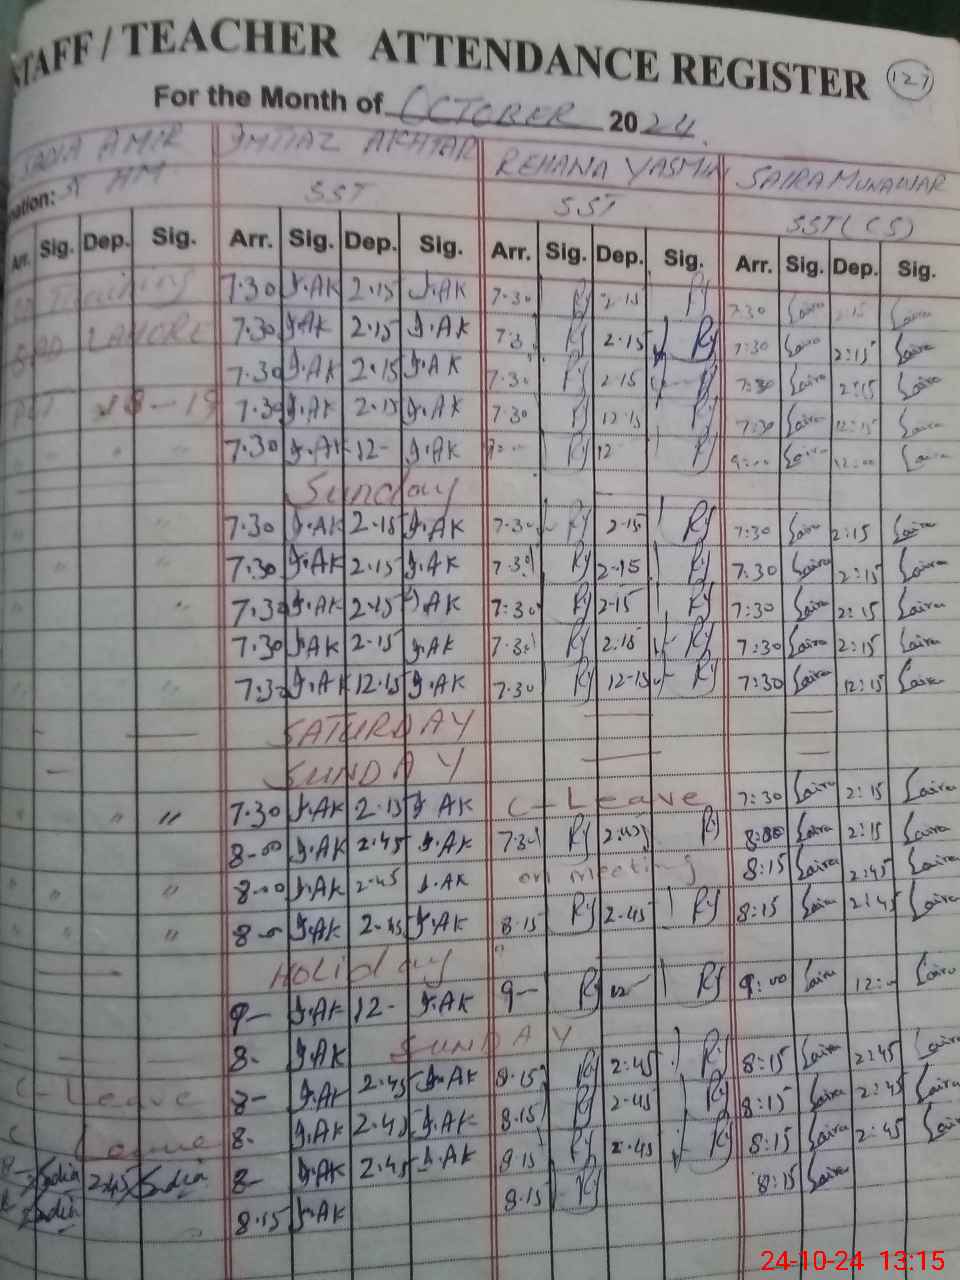 STAFF / TEACHER ATTENDANCE REGISTER 127
For the Month of OCTOBER 2024.
SADIA AMIR IMTIAZ AKHTAR REHANA YASMIN SAIRA MUNAWAR
nation: HM SST SST SST (CS)
Arr. Sig. Dep. Sig. Arr. Sig. Dep. Sig. Arr. Sig. Dep. Sig. Arr. Sig. Dep. Sig.
Training 7.30 I.AK 2.15 I.AK 7.30 RY 2.15 RY 7:30 Saira 2:15 Saira
LAHORE 7.30 I.AK 2.15 I.AK 7.3 RY 2.15 RY 7:30 Saira 2:15 Saira
7.30 I.AK 2.15 I.AK 7.30 RY 2.15 RY 7:30 Saira 2:15 Saira
7.30 I.AK 2.15 I.AK 7.30 RY 12.15 RY 7:30 Saira 12:15 Saira
7.30 I.AK 12- I.AK RY 12 RY 9:00 Saira 12:00 Saira
Sunday
7.30 I.AK 2.15 I.AK 7.30 RY 2.15 RY 7:30 Saira 2:15 Saira
7.30 I.AK 2.15 I.AK 7.30 RY 2-15 RY 7:30 Saira 2:15 Saira
7.30 I.AK 2.15 I.AK 7:30 RY 2-15 RY 7:30 Saira 2:15 Saira
7.30 I.AK 2.15 I.AK 7.30 RY 2.15 RY 7:30 Saira 2:15 Saira
7.30 I.AK 12.15 I.AK 7.30 RY 12-15 RY 7:30 Saira 12:15 Saira
SATURDAY
SUNDAY
" " 7.30 I.AK 2.15 I.AK C-Leave 7:30 Saira 2:15 Saira
8-00 I.AK 2.45 I.AK 7.30 RY 2.45 RY 8:00 Saira 2:15 Saira
" " " 8-00 I.AK 2-45 I.AK on meeting 8:15 Saira 2:45 Saira
" " " 8-0 I.AK 2-45 I.AK 8.15 RY 2-45 RY 8:15 Saira 2:45 Saira
Holiday
9- I.AK 12- I.AK 9- RY 12- RY 9:00 Saira 12:- Saira
SUNDAY
8- I.AK 2.45 I.AK 8.15 RY 2:45 RY 8:15 Saira 2:45 Saira
C-Leave 8- I.AK 2.45 I.AK 8.15 RY 2-45 RY 8:15 Saira 2:45 Saira
C Leave 8- I.AK 2.45 I.AK 8.15 RY 2-45 RY 8:15 Saira 2:45 Saira
8- Sadia 2:45 Sadia 8- I.AK 8.15 RY 8:15 Saira
8- Sadia 8.15 I.AK
24-10-24 13:15